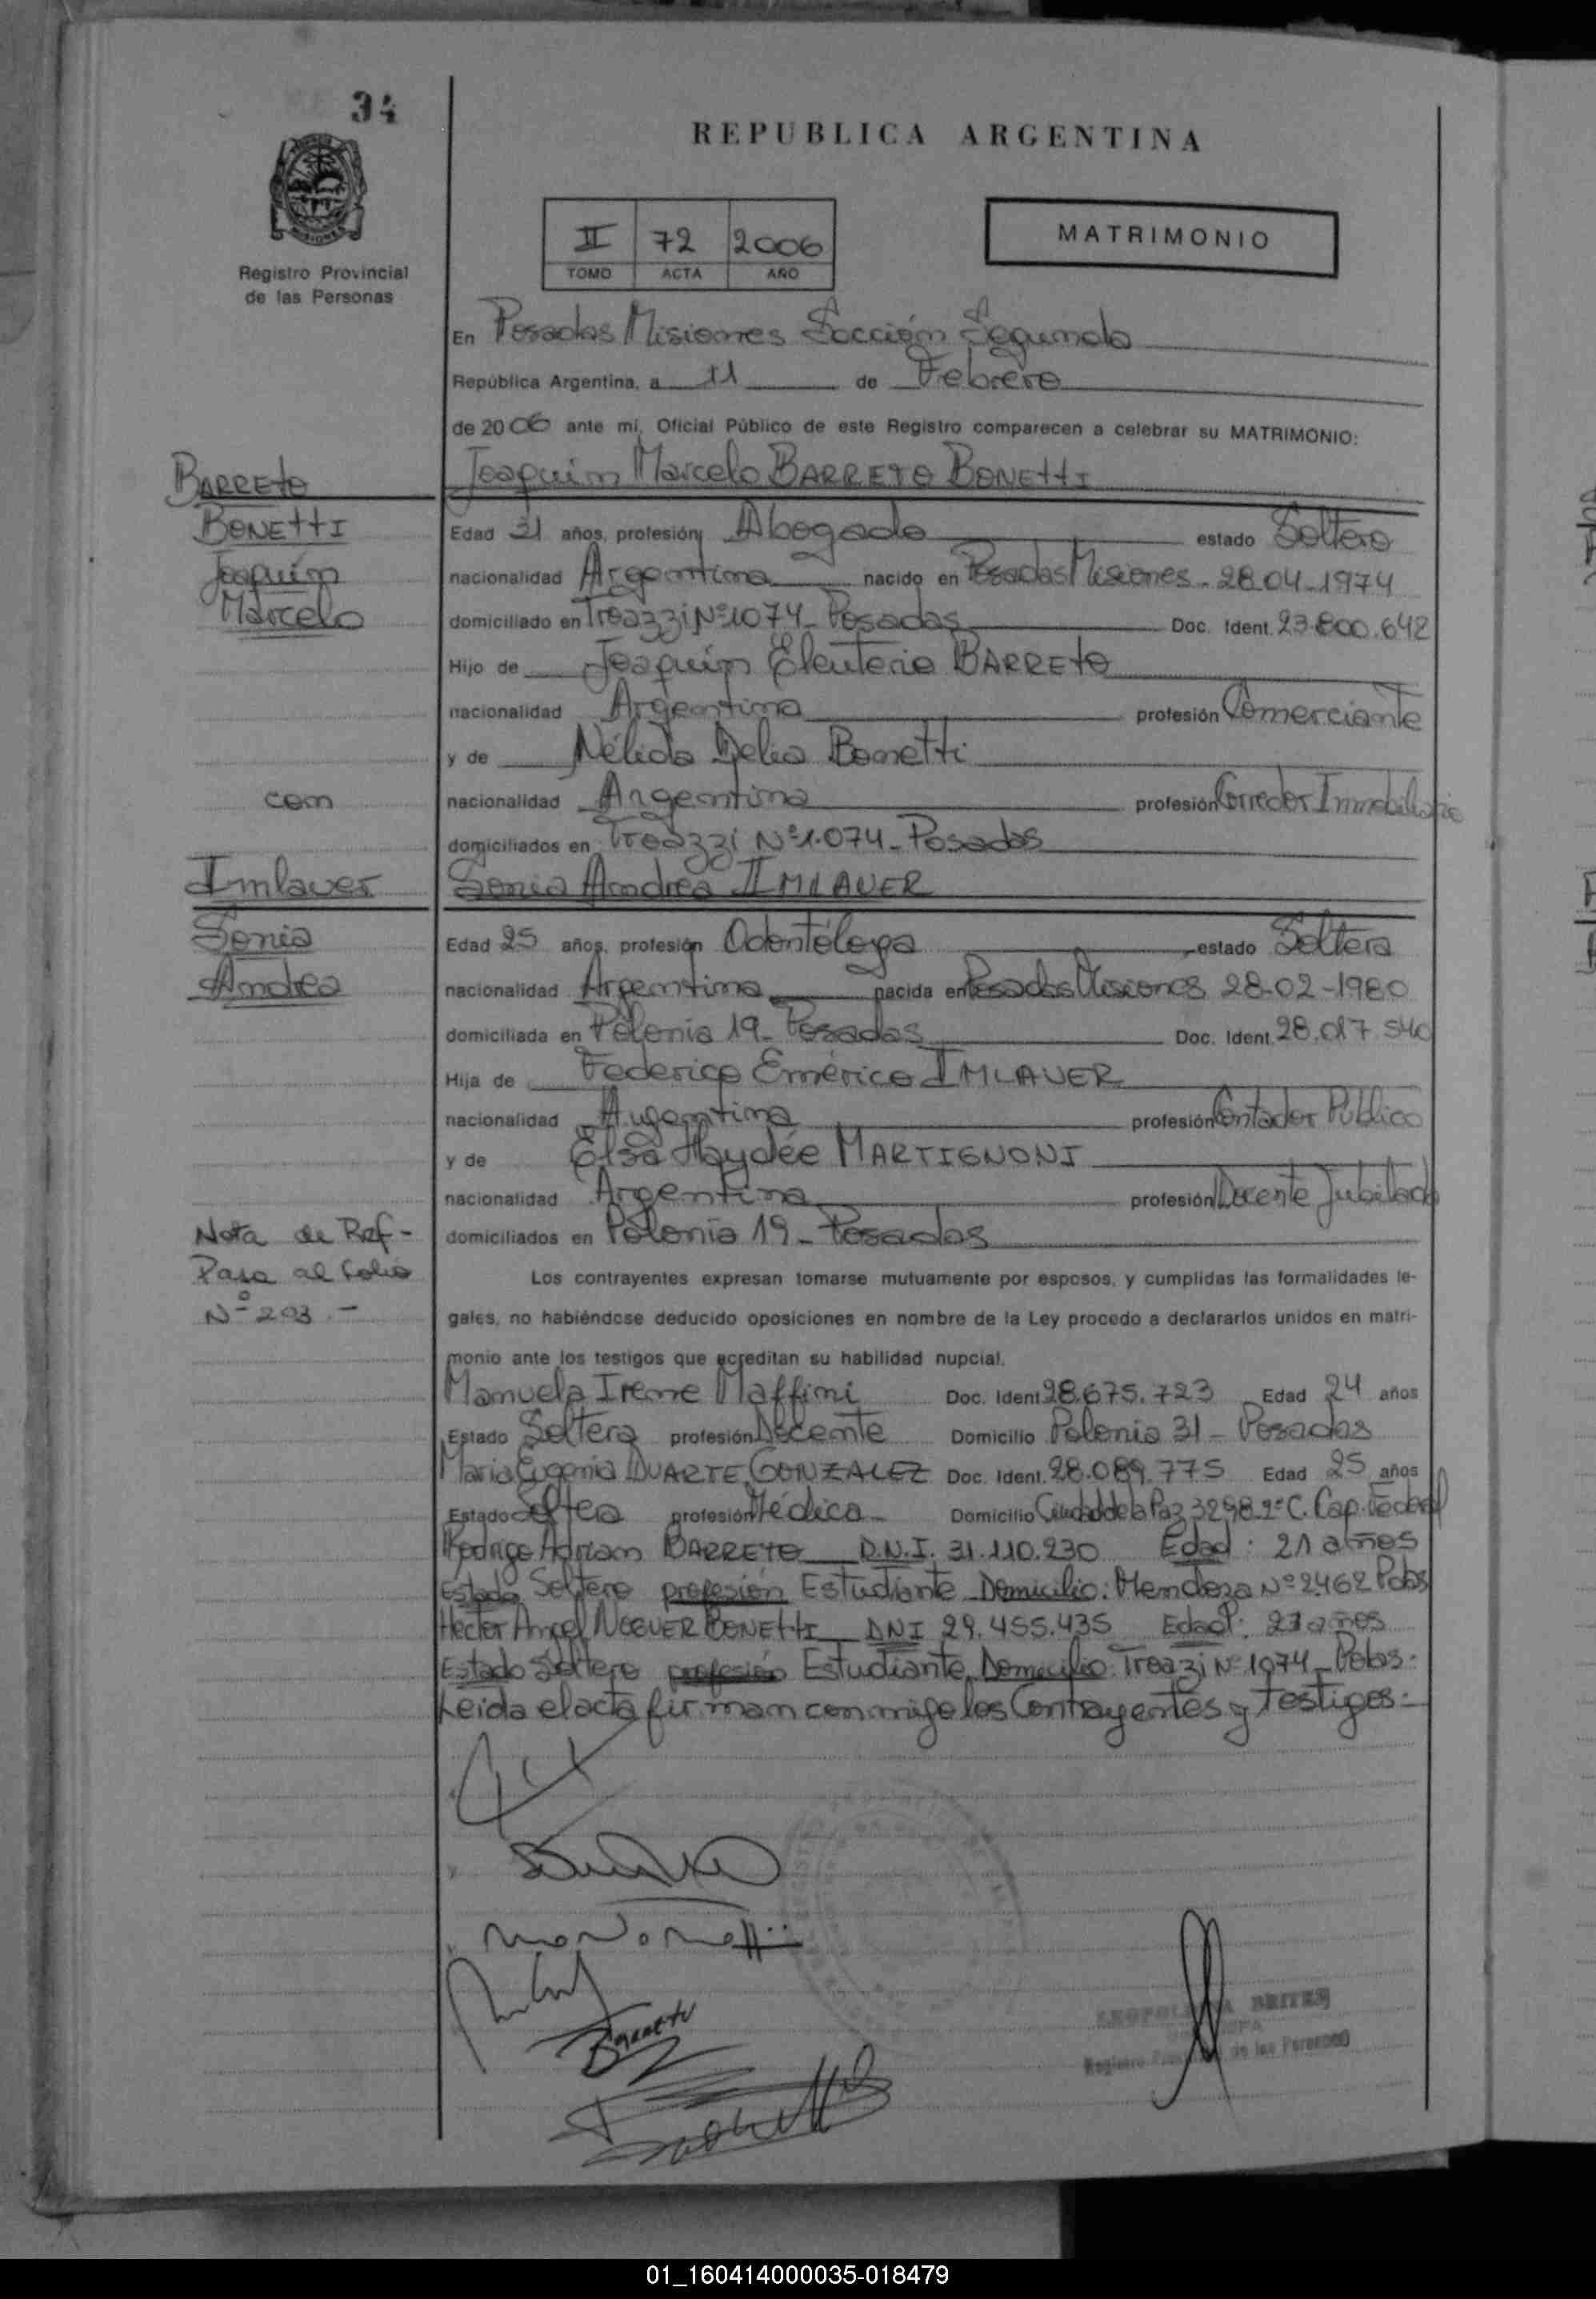 34
REPUBLICA ARGENTINA
MISIONES
Registro Provincial
de las Personas
II 72 2006
TOMO ACTA AÑO
MATRIMONIO
En Posadas Misiones Sección Segunda
República Argentina, a 11 de Febrero
de 2006 ante mi, Oficial Público de este Registro comparecen a celebrar su MATRIMONIO:
BARRETO
BONETTI
Joaquín
Marcelo
Joaquin Marcelo BARRETO BONETTI
Edad 31 años, profesión Abogado estado Soltero
nacionalidad Argentina nacido en Posadas Misiones - 28-04-1974
domiciliado en Troazzi Nº1074 - Posadas Doc. Ident. 23.800.642
Hijo de Joaquín Eleuterio BARRETO
nacionalidad Argentina profesión Comerciante
y de Nélida Delia Bonetti
con
nacionalidad Argentina profesión Corredor Inmobiliario
domiciliados en Troazzi Nº1.074 - Posadas
Imlauer
Sonia
Andrea
Sonia Andrea IMLAUER
Edad 25 años, profesión Odontóloga estado Soltera
nacionalidad Argentina nacida en Posadas Misiones 28-02-1980
domiciliada en Polonia 19 - Posadas Doc. Ident. 28.017.540
Hija de Federico Emérico IMLAUER
nacionalidad Argentina profesión Contador Público
y de Elsa Haydée MARTIGNONI
nacionalidad Argentina profesión Docente Jubilada
domiciliados en Polonia 19 - Posadas
Nota de Ref-
Pasa al Folio
Nº 203.-
Los contrayentes expresan tomarse mutuamente por esposos, y cumplidas las formalidades le-
gales, no habiéndose deducido oposiciones en nombre de la Ley procedo a declararlos unidos en matri-
monio ante los testigos que acreditan su habilidad nupcial.
Manuela Irene Maffini Doc. Ident. 28.675.723 Edad 24 años
Estado Soltera profesión Docente Domicilio Polonia 31 - Posadas
Maria Eugenia DUARTE GONZALEZ Doc. Ident. 28.089.775 Edad 25 años
Estado Soltera profesión Médica Domicilio Ciudad de la Paz 3298 2º C. Cap. Federal
Rodrigo Adrian BARRETO D.N.I. 31.110.230 Edad: 21 años
Estado Soltero profesión Estudiante Domicilio: Mendoza Nº 2462 Pdas
Hector Angel NOGUER BONETTI DNI 29.455.435 Edad: 23 años
Estado Soltero profesión Estudiante Domicilio: Troazi Nº 1074 - Pdas.
Leida el acta firman conmigo los Contrayentes y Testigos.-
Barreto
BRITEZ
Registro de las Personas
01_160414000035-018479